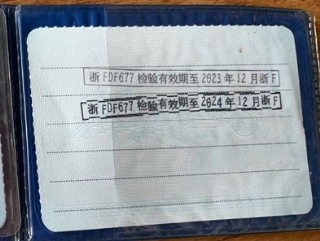 浙FDF677 检验有效期至2023年12月浙F
浙FDF677 检验有效期至2024年12月浙F